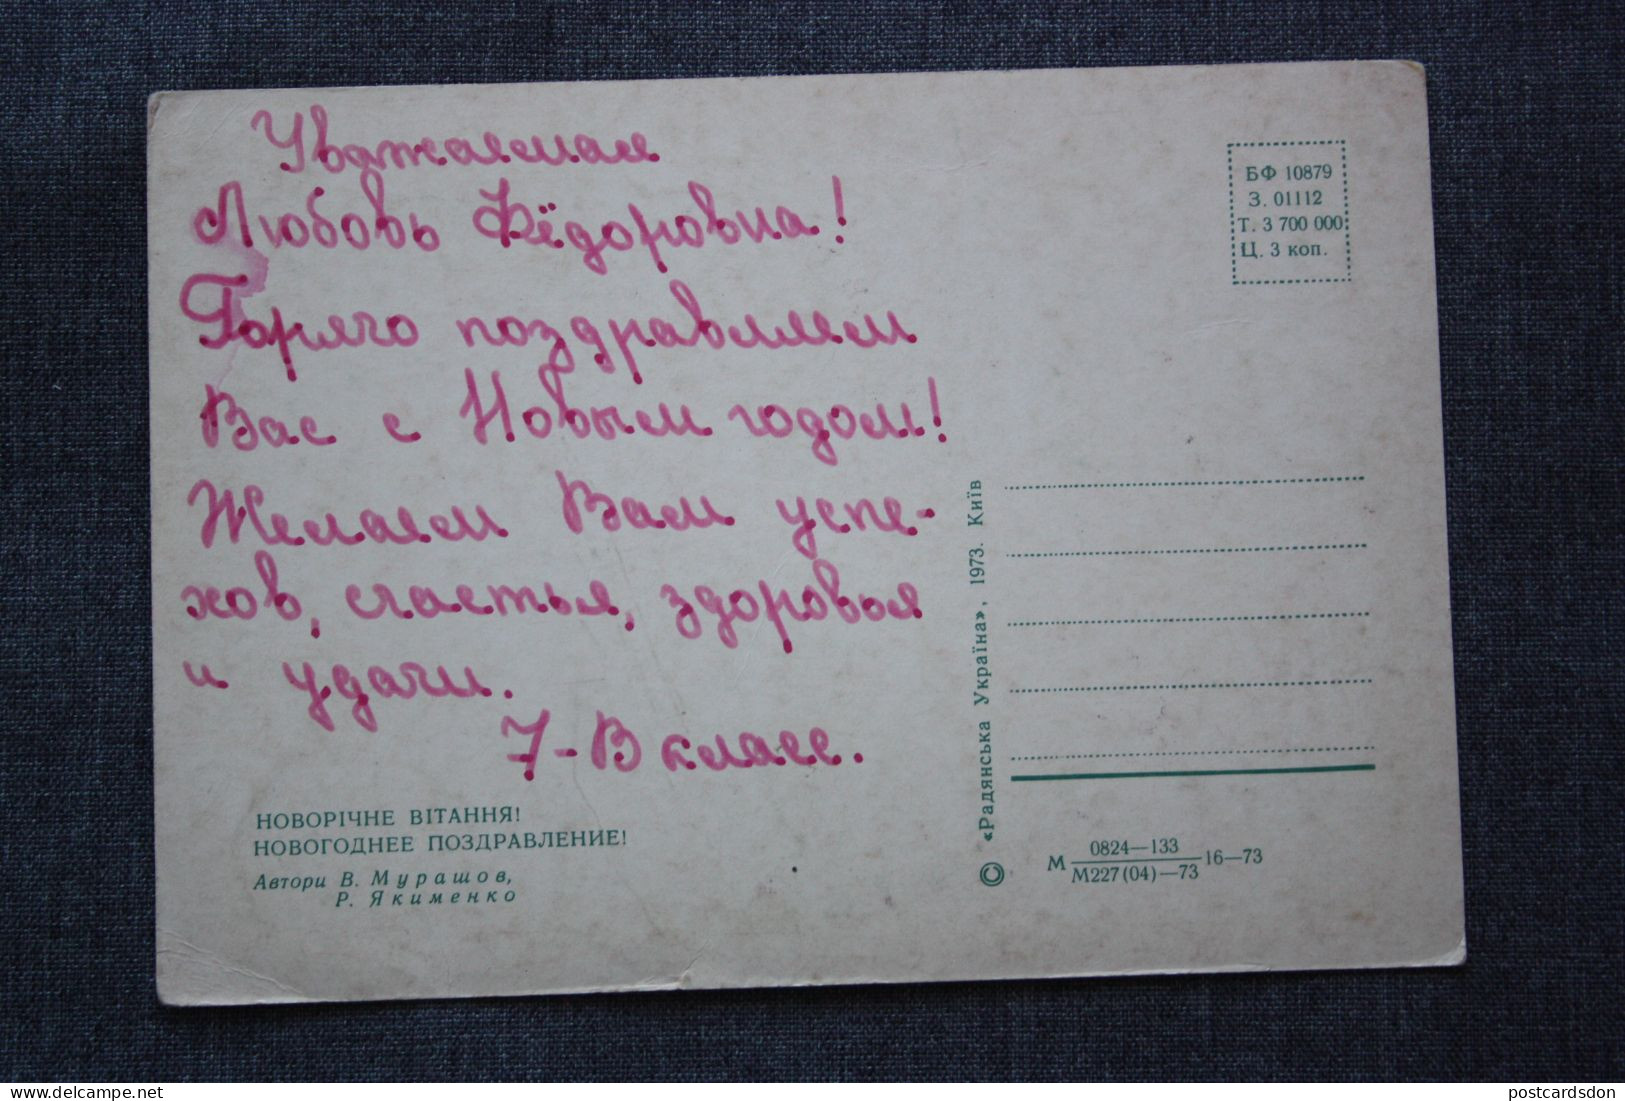 Уважаемая
Любовь Фёдоровна!
Горячо поздравляем
Вас с Новым годом!
Желаем Вам успе-
хов, счастья, здоровья
и удачи.
7-В класс.
НОВОРІЧНЕ ВІТАННЯ!
НОВОГОДНЕЕ ПОЗДРАВЛЕНИЕ!
Автори В. Мурашов,
Р. Якименко
© «Радянська Україна», 1973. Київ
БФ 10879
З. 01112
Т. 3 700 000
Ц. 3 коп.
М 0824—133 16—73
М227(04)—73
Delcampe.net
postcardsdon